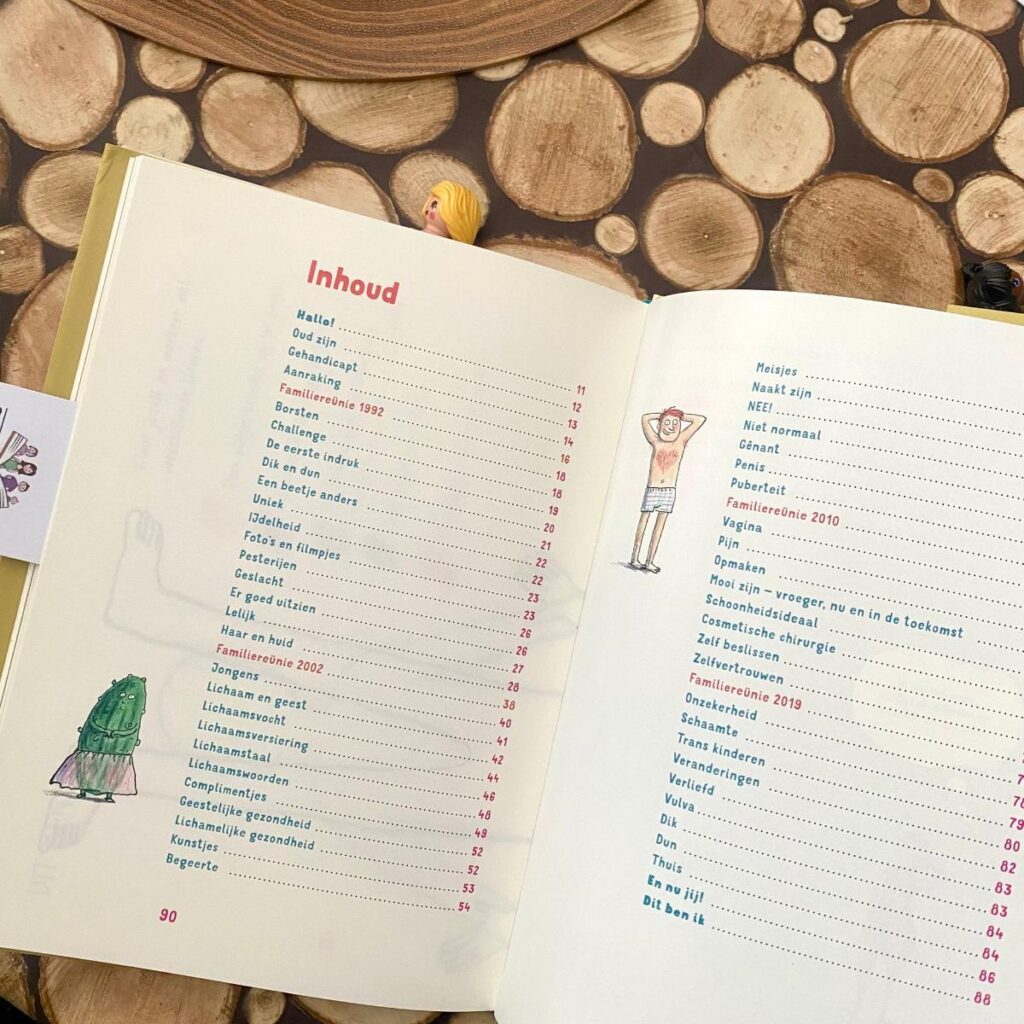 Inhoud
Hallo! 11
Oud zijn 12
Gehandicapt 13
Aanraking 14
Familiereünie 1992 16
Borsten 18
Challenge 18
De eerste indruk 19
Dik en dun 20
Een beetje anders 21
Uniek 22
IJdelheid 22
Foto's en filmpjes 23
Pesterijen 23
Geslacht 26
Er goed uitzien 26
Lelijk 27
Haar en huid 28
Familiereünie 2002 38
Jongens 40
Lichaam en geest 41
Lichaamsvocht 42
Lichaamsversiering 44
Lichaamstaal 46
Lichaamswoorden 48
Complimentjes 49
Geestelijke gezondheid 52
Lichamelijke gezondheid 52
Kunstjes 53
Begeerte 54
90
Meisjes
Naakt zijn
NEE!
Niet normaal
Gênant
Penis
Puberteit
Familiereünie 2010
Vagina
Pijn
Opmaken
Mooi zijn – vroeger, nu en in de toekomst
Schoonheidsideaal
Cosmetische chirurgie
Zelf beslissen
Zelfvertrouwen
Familiereünie 2019
Onzekerheid
Schaamte 78
Trans kinderen 79
Veranderingen 80
Verliefd 82
Vulva 83
Dik 83
Dun 84
Thuis 84
En nu jij! 86
Dit ben ik 88